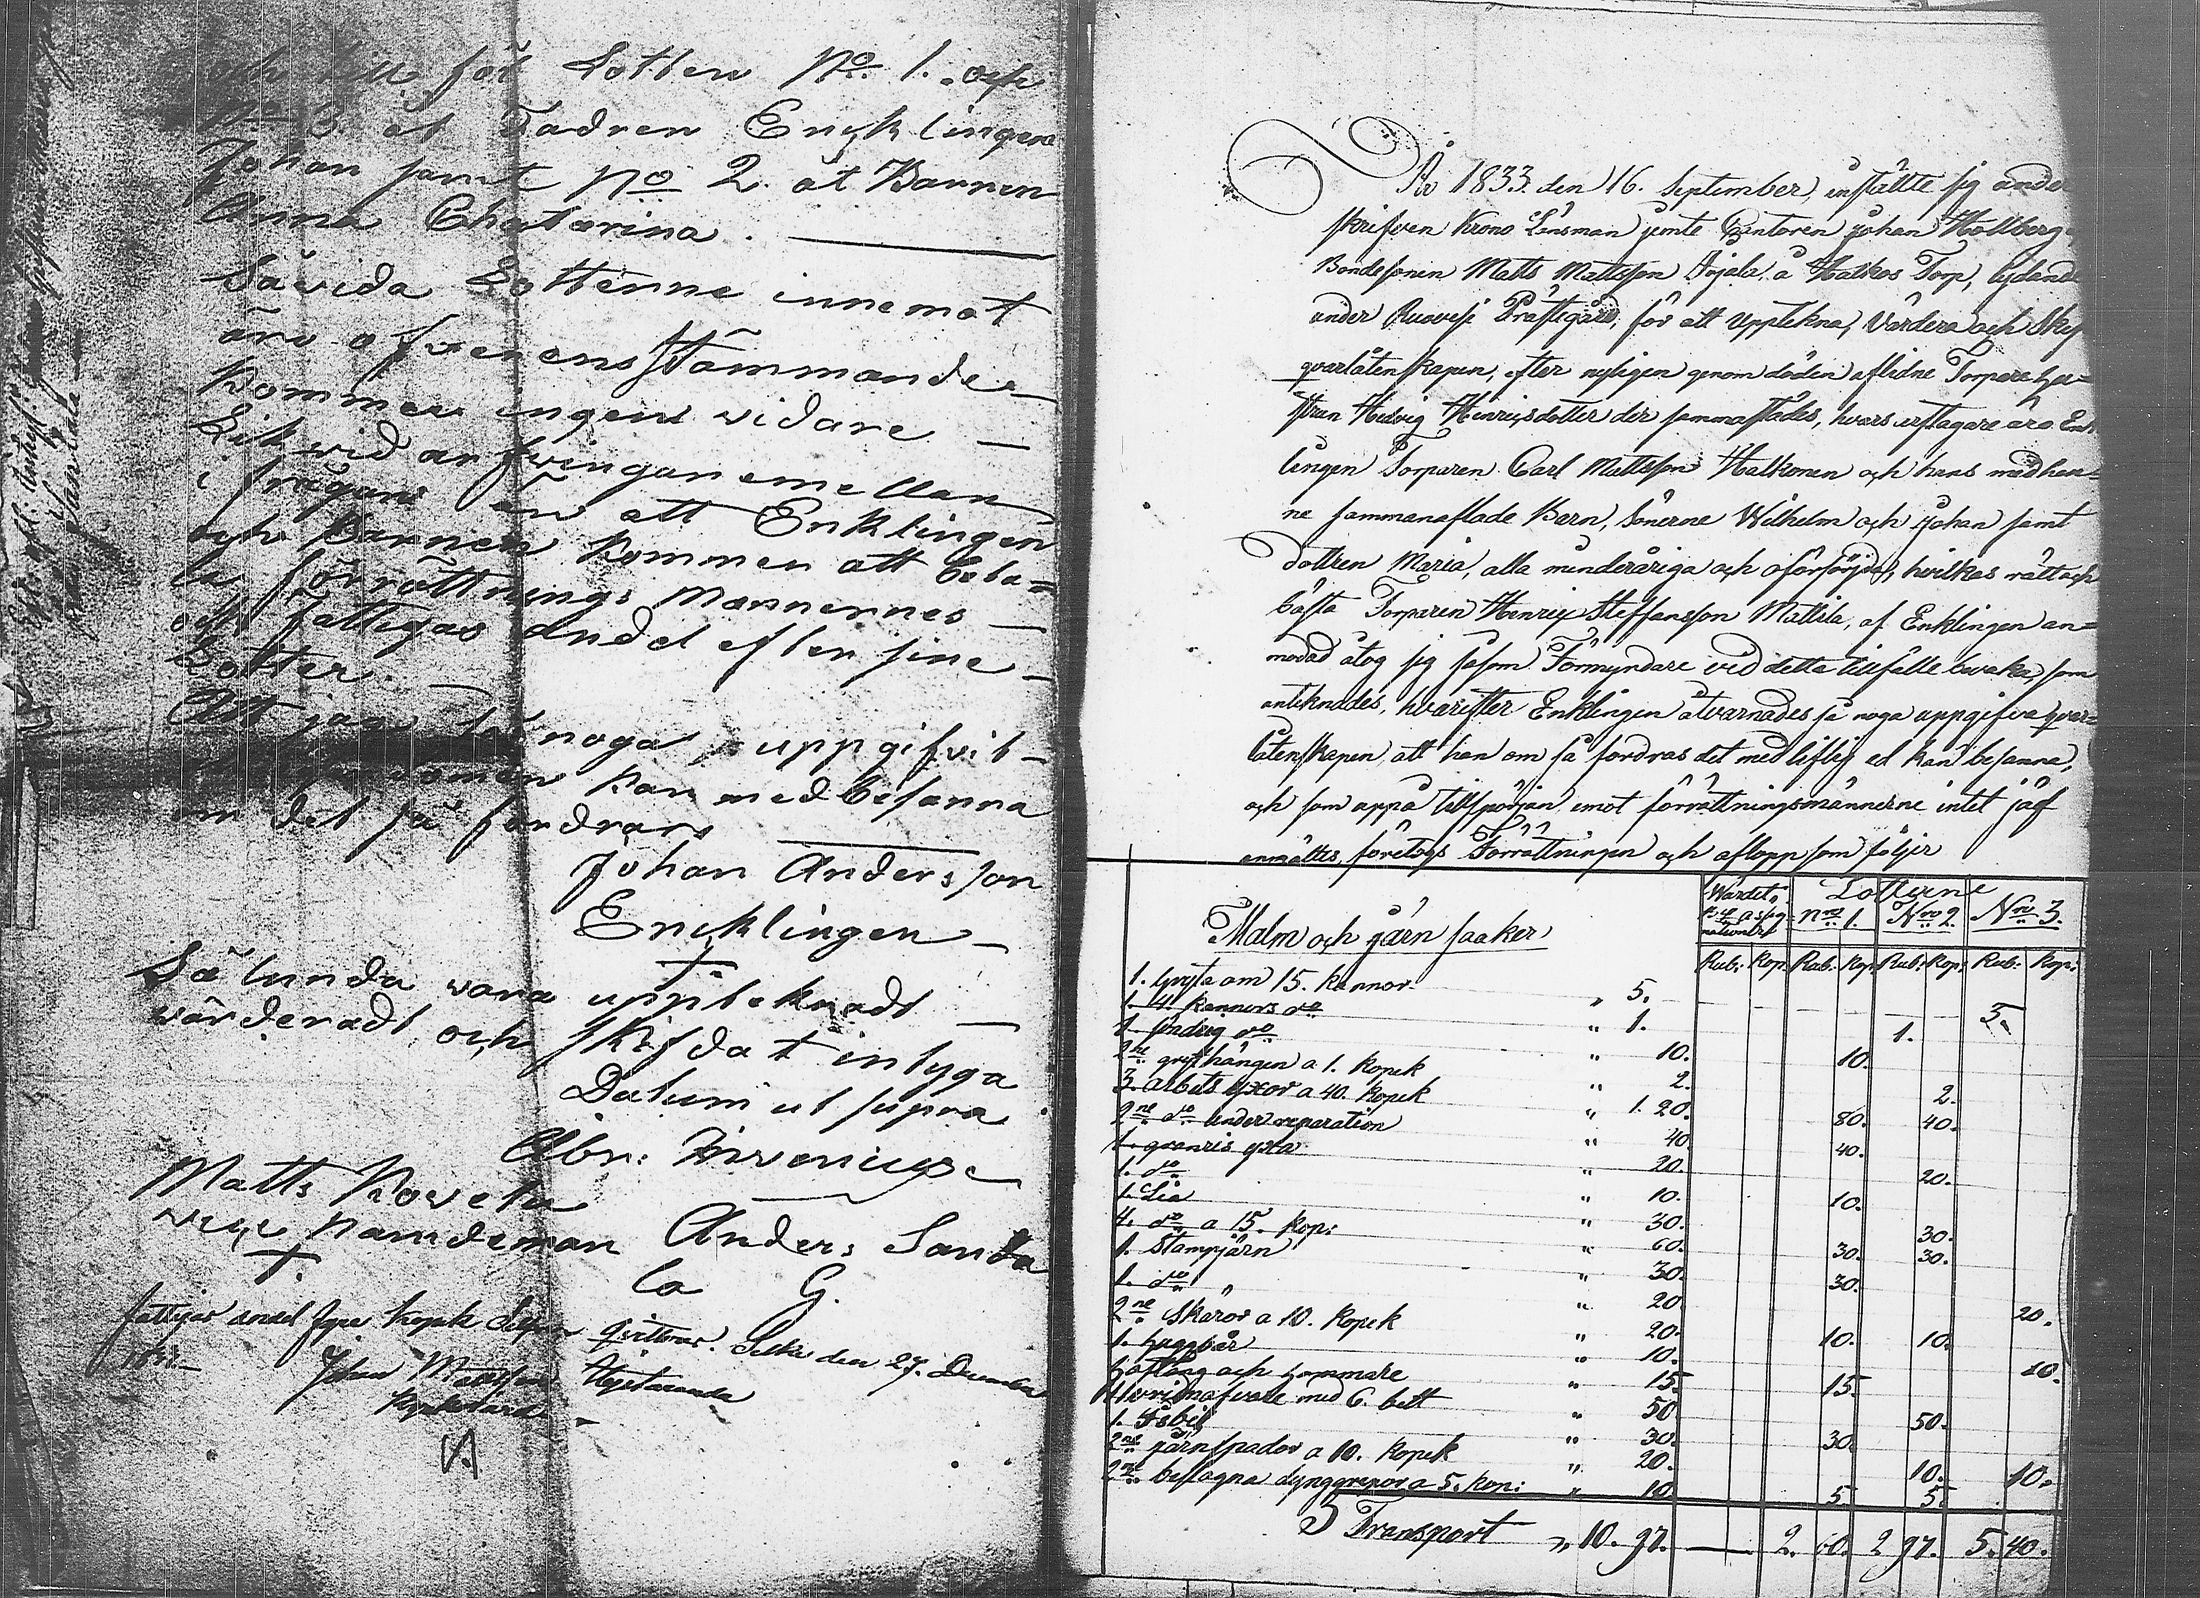 för Lotten No 1. och
No 3. åt Fadren Encklingen
Johan samt No 2. åt Barnen
Anna Chatarina.
Såvida Lotterne innemot
äro öfverensstämmande
kommer ingen vidare
Likvid arfvingar emellan
i frågan än att Enklingen
och Barnen kommer att beta=
la förrättnings Mannernes
och fattigas andel efter sine
Lotter.
Att jag så noga uppgifvit
kan med besanna
om det så fordrars
Johan Anders son
Encklingen
Sålunda vara uppteknadt
värderadt och skifdat intyga
Datum ut supra
Abr: Invenius
Matts Rovela
vice Nämndeman Anders Sanda
la G.
fattigas andel fyra kopek Silfver qvitteras. den 27. December
Johan Mattsson
År 1833. den 16. September, instälte sig under
skrifven Krono Länsman jemte Cantoren Johan Hollberg
Bondesonin Matts Mattsson Irjala, å Halkos Torp, lydande
under Ruovesi Prästgård, för att Upptekna, Värdera och Skif
qvarlåtenskapen, efter nyligen genom döden aflidne Torpare hu=
strun Hedvig Hinricsdotter der sammastädes, hvars arftagare äro Enk
lingen Torparen Carl Mattsson Halkonen och hans med hen=
ne sammanaflade Barn, Sönerne Wilhelm och Johan samt
Dottren Maria, alla minderåriga och oförsörjda, hvilkas rätt och
bästa Torparen Henric Steffansson Mattila, af Enklingen an=
modad åtog sig såsom Förmyndare vid detta tillfälle bevaka, som
antiknades, hvarefter Enklingen åtvarnades så noga uppgifva qvar=
låtenskapen, att han om så fordras det med liflig ed kan besanna,
och som uppå tillspörjan emot förrättningsmännerne intet jäf
anmältes, företogs Förrättningen och aflopp som följer
Wardet Lotterne
Nro 1. Nro 2. Nro 3.
Malm och järn saaker
Rub: Kop. Rub: Kop: Rub: Kop: Rub: Kop:
1. gryta om 15. kannor " 5. 5.
1. 4 kannors do " 1. 1.
1. sönderig do " 10. 10.
2ne grythängen a 1. kopek " 2. 2.
3. arbets yxor a 40. kopek " 1. 20. 80. 40.
2ne do under reparation " 40 40.
1. granris yxa " 20. 20.
1. do " 10. 10.
1. Lia " 30. 30.
4. do a 15. kop: " 60. 30. 30.
1. Stampjärn " 30. 30.
1. do " " 20 20.
2ne Skäror a 10. kopek " 20. 10. 10.
1. huggbår " 10. 10.
hoftång och hommare " 15. 15.
med 6. bett " 50 50.
1. Isbill " 30. 30.
2ne järnspador a 10. kopek " 20. 10. 10.
2ne beslagna dynggrepor a 5. kop: " 10 5 5.
Transport " 10. 97. 2. 60. 2 97. 5. 40.